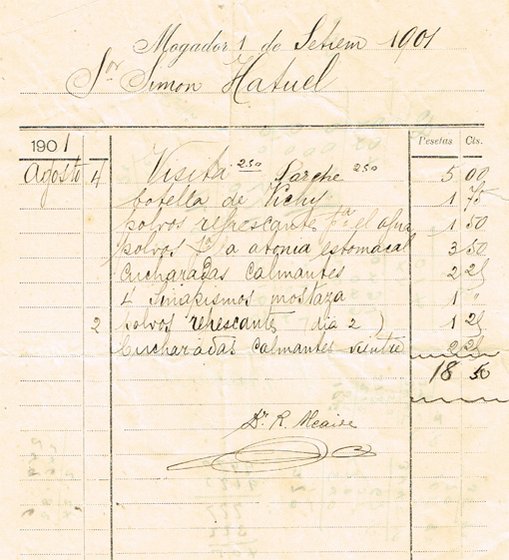 Mogador 1 de Setiem 1901
Sor Simon Hatuel
1901 Pesetas Cts.
Agosto 4 Visita 2.50 250 5 00
botella de Vichy 1 75
polvos refrescante pa el agua 1 50
polvos pa a atonia estomacal 3 50
Cucharadas Calmantes 2 25
4 Sinapismos mostaza 1 "
2 polvos refrescante (dia 2) 1 25
Cucharadas Calmantes vientre 2 25
18 50
Dr R.